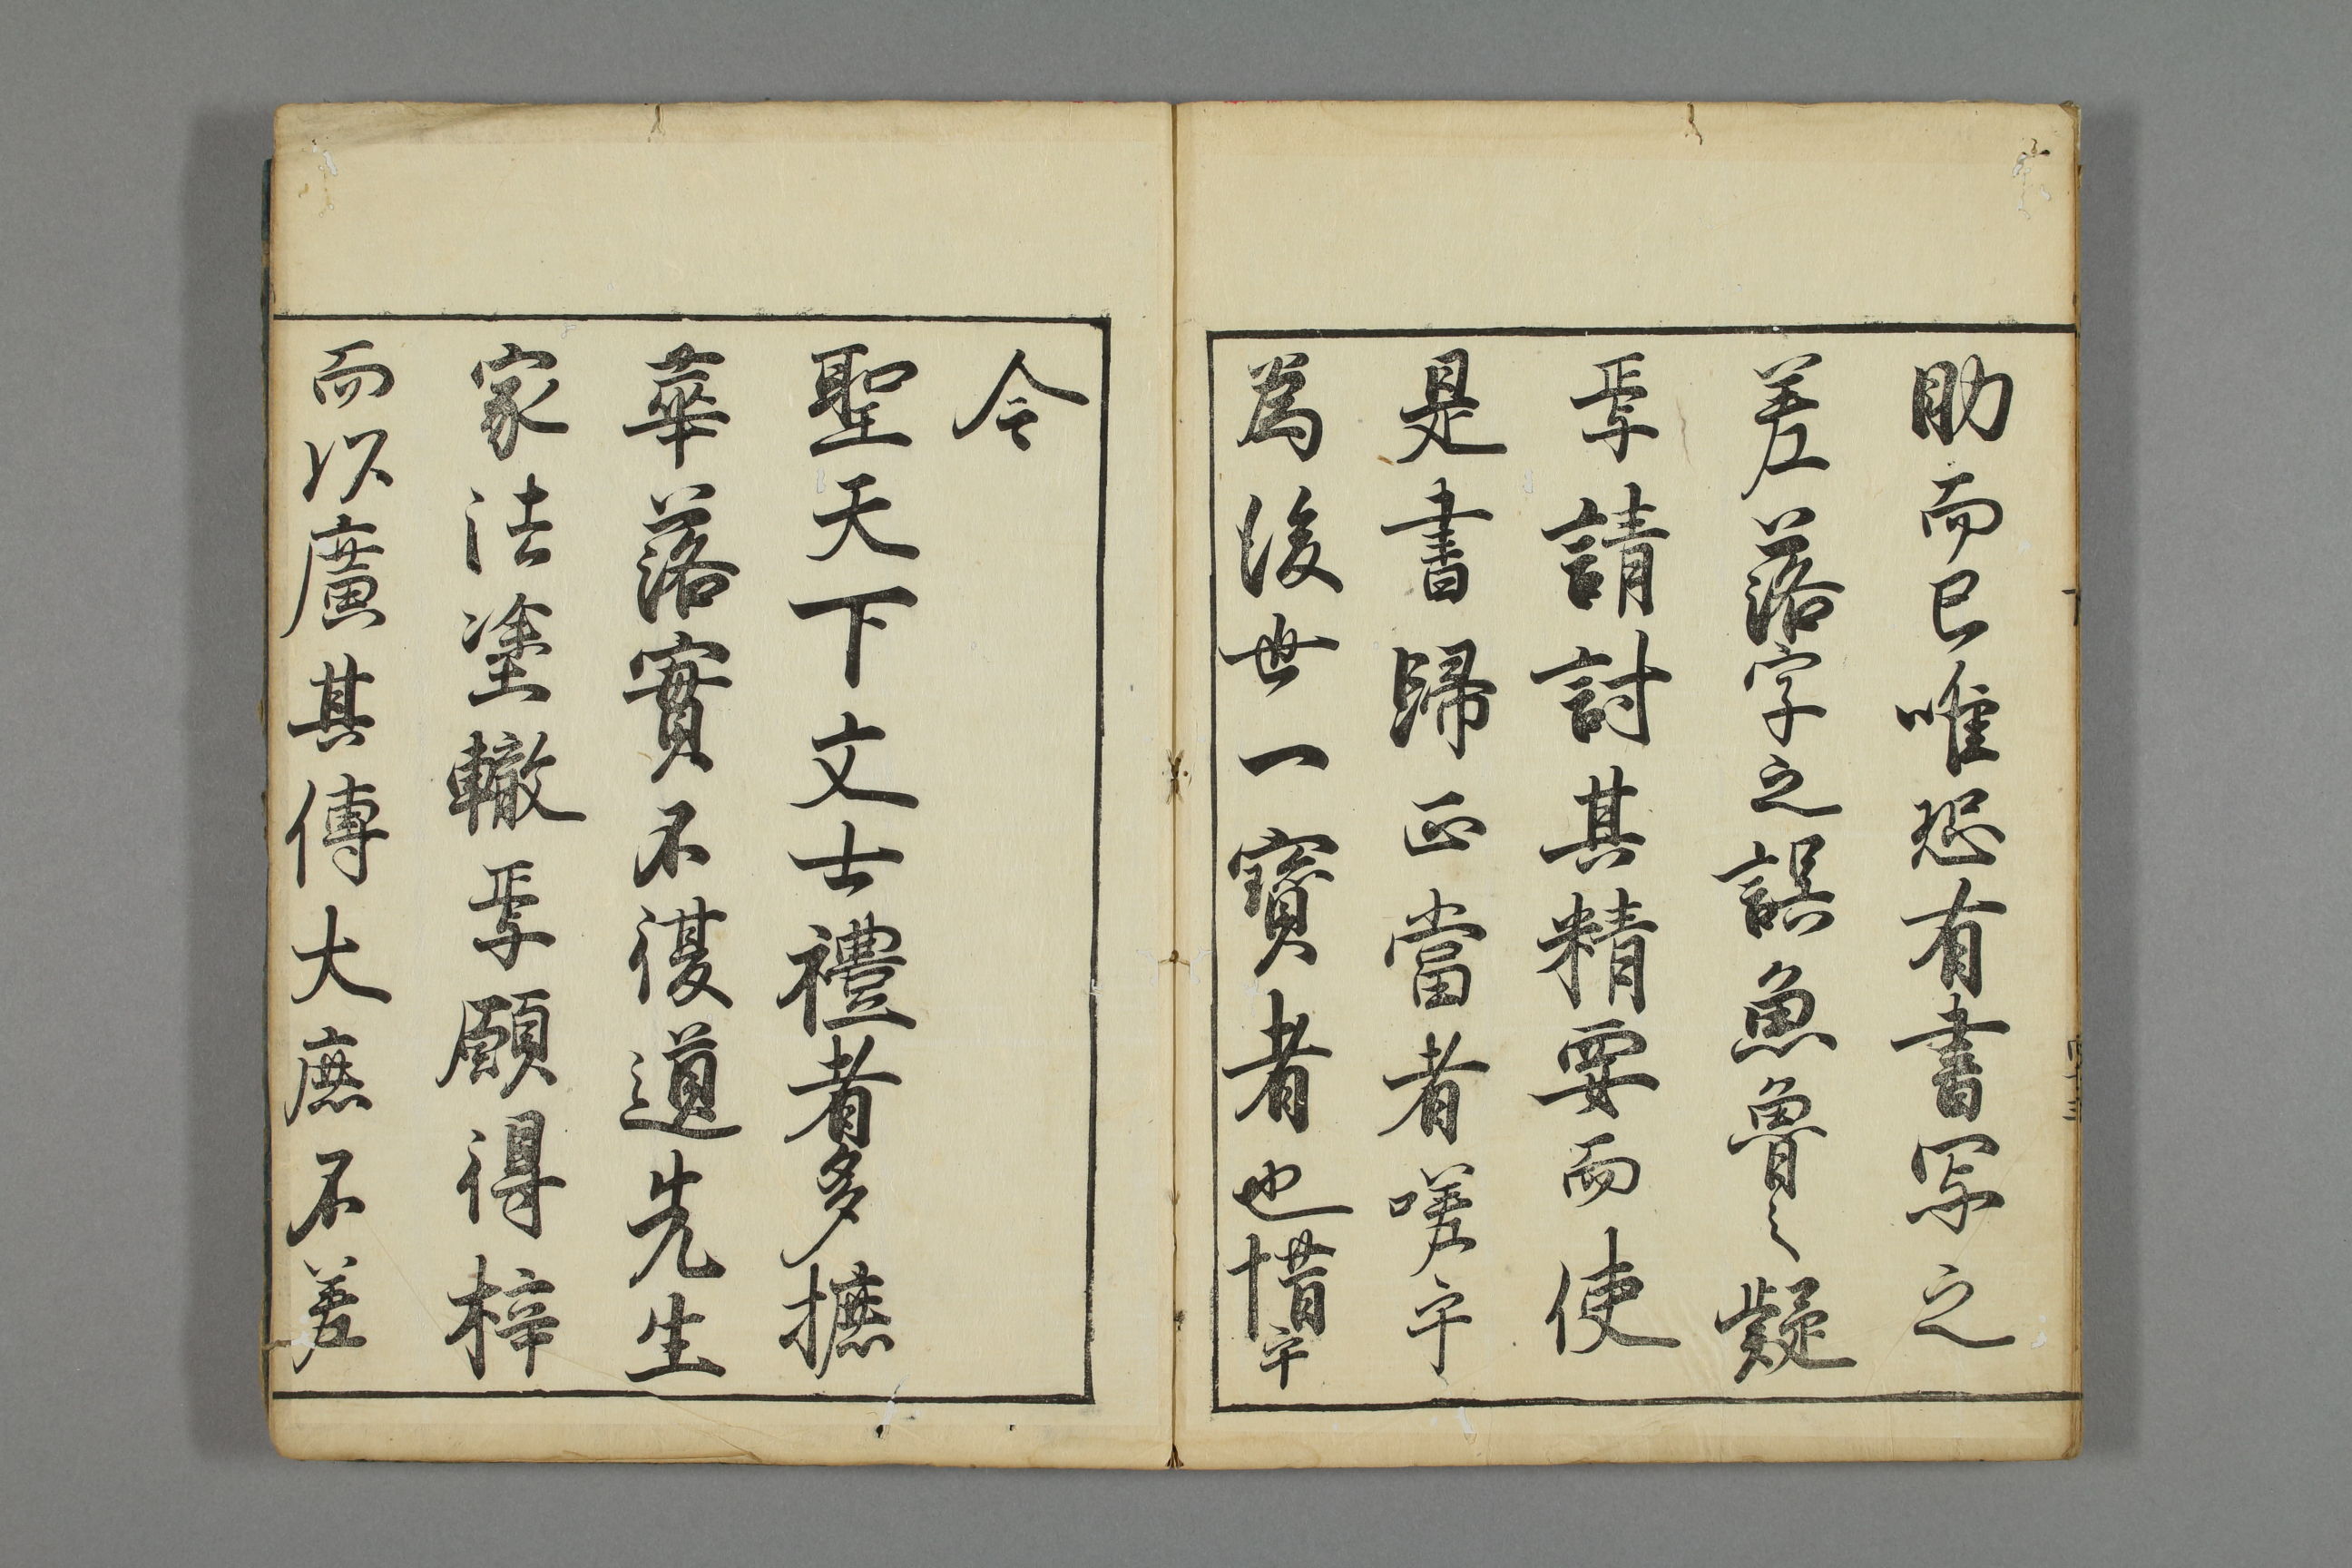 助而已唯恐有書写之
差落字之誤魚魯之疑
焉請討其精要而使
是書歸正當者嗟乎
為後世一寶者也惜乎
今
聖天下文士禮者多摭
華落實不復道先生
家法塗轍焉願得梓
而以廣其傳大庶不差